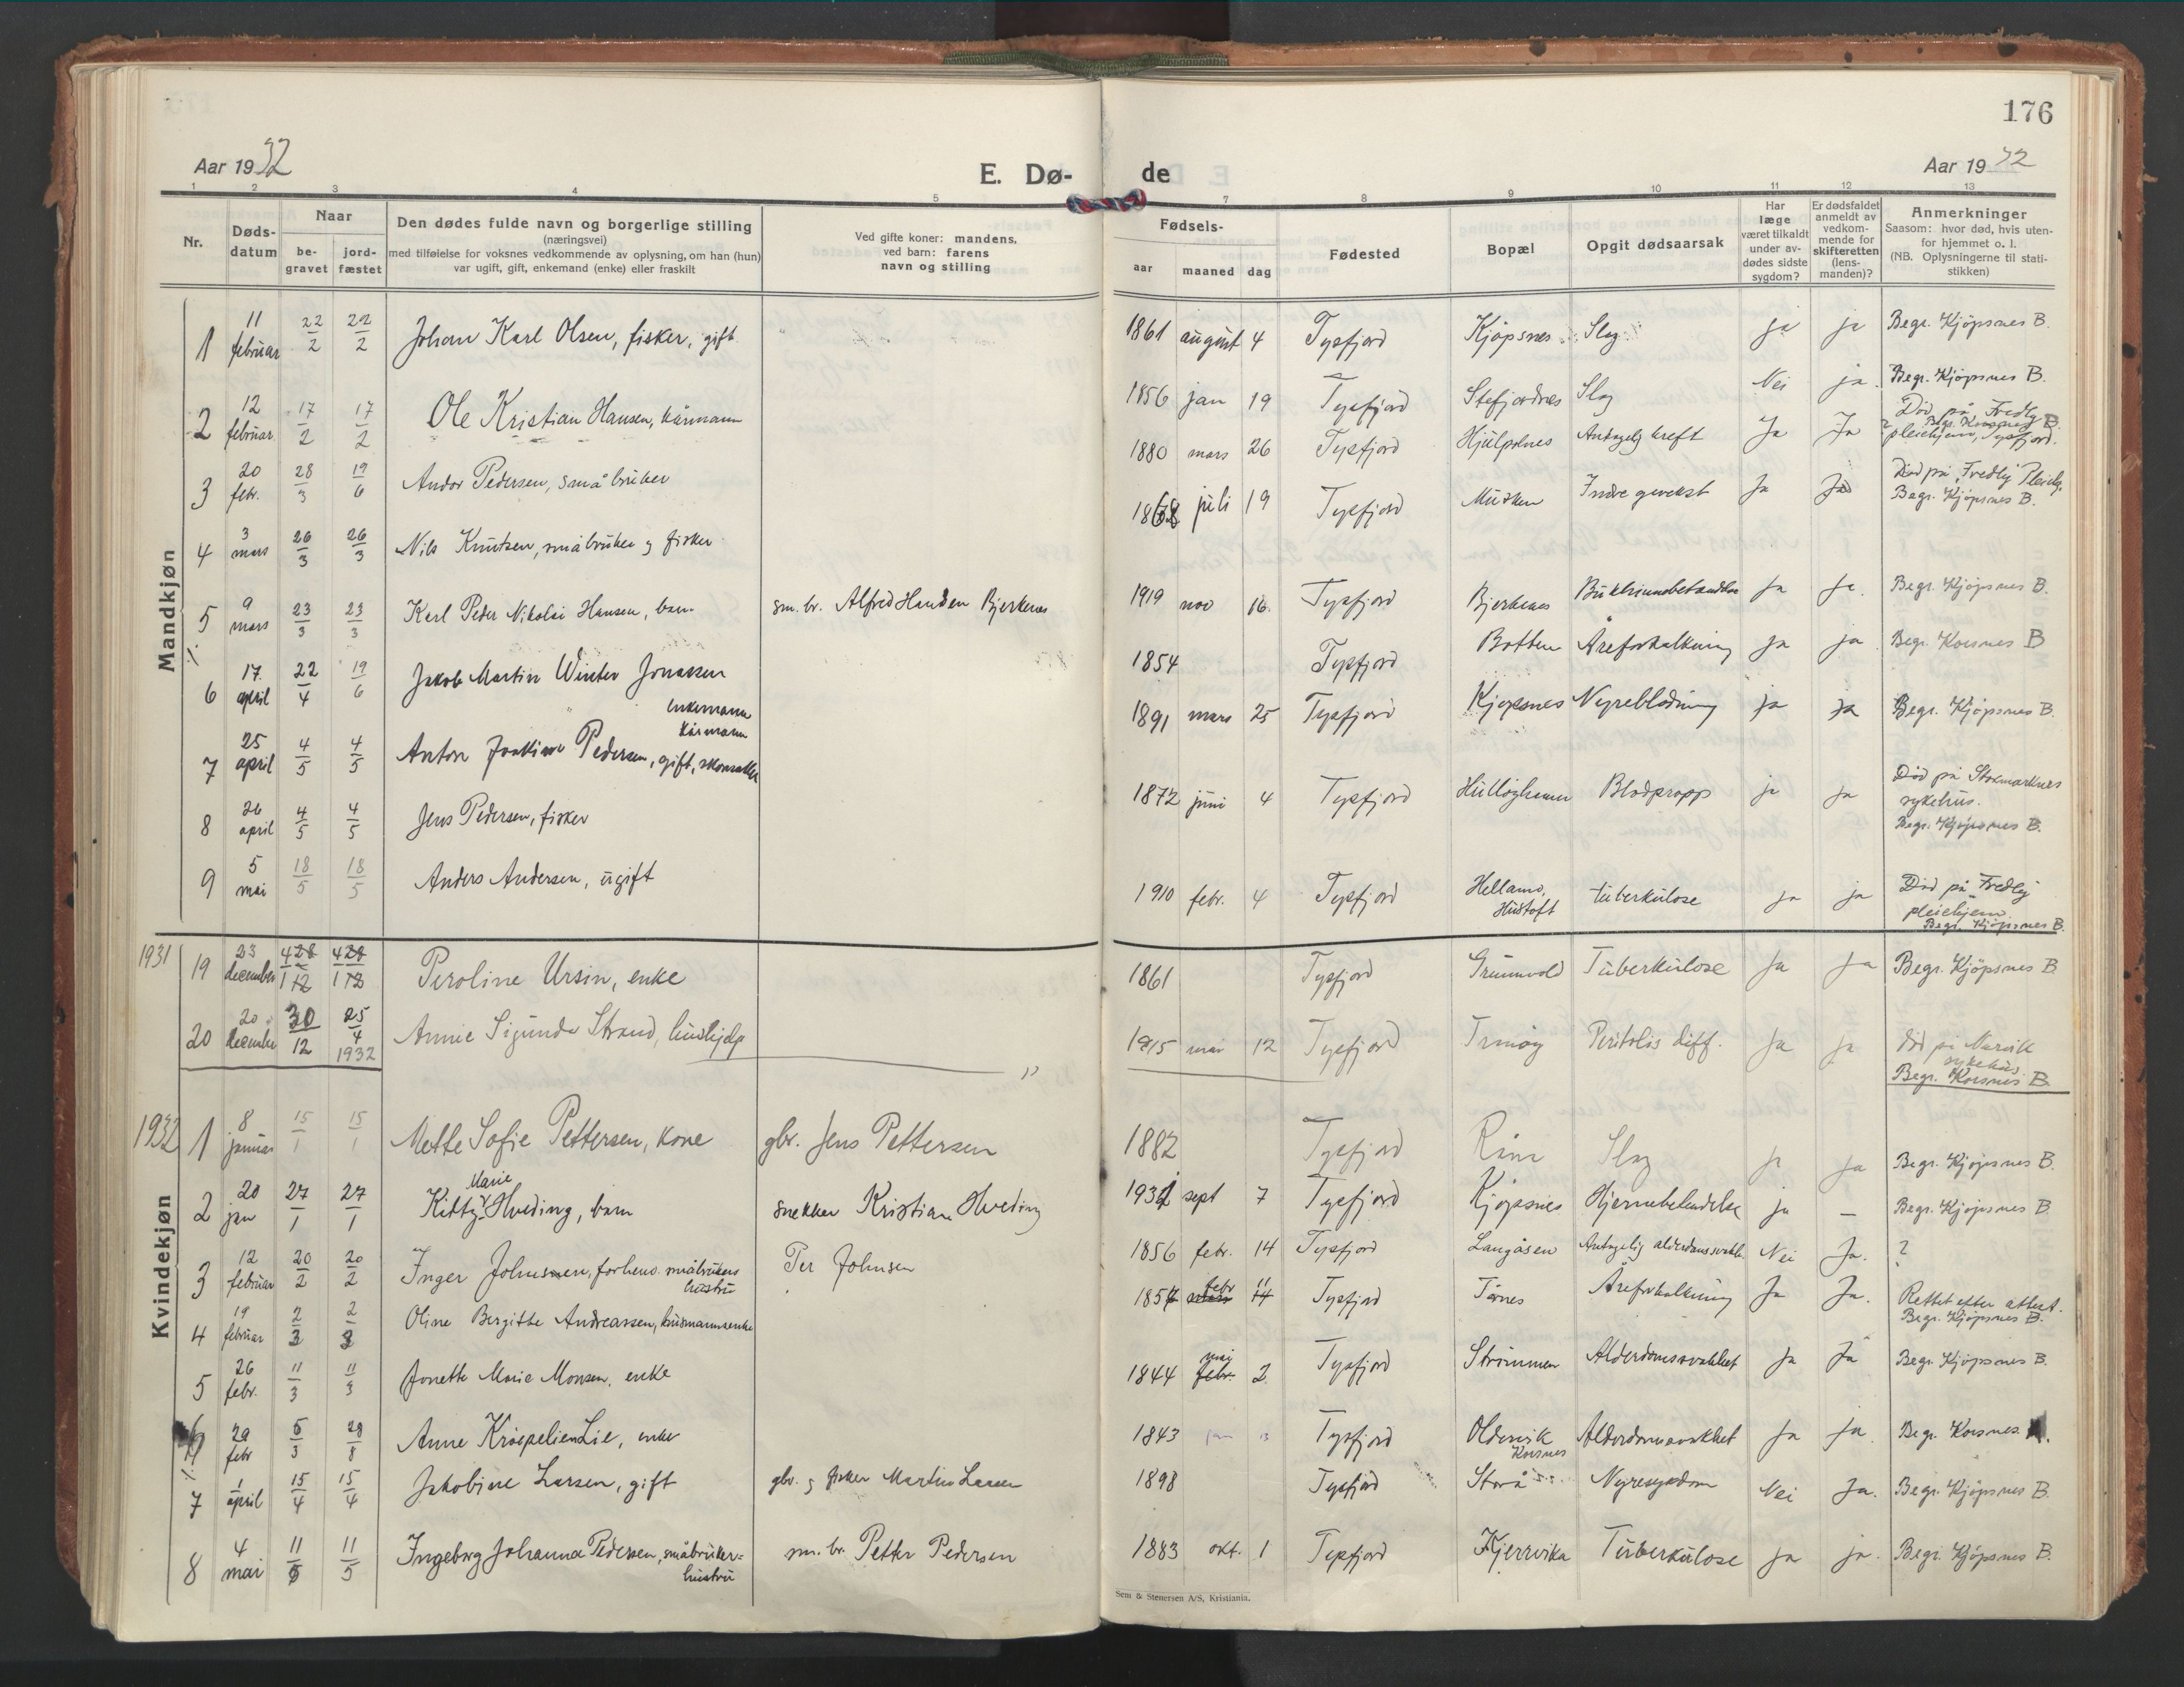 176
Aar 1932
E. Dø-
de
Aar 1932
1 2 3 4 5 7 8 9 10 11 12 13
Nr.
Døds-
datum
Naar
be-
gravet
jord-
fæstet
Den dødes fulde navn og borgerlige stilling
(næringsvei)
med tilføielse for voksnes vedkommende av oplysning, om han (hun)
var ugift, gift, enkemand (enke) eller fraskilt
Ved gifte koner: mandens,
ved barn: farens
navn og stilling
Fødsels-
aar maaned dag
Fødested
Bopæl
Opgit dødsaarsak
Har
læge
været tilkaldt
under av-
dødes sidste
sygdom?
Er dødsfaldet
anmeldt av
vedkom-
mende for
skifteretten
(lens-
manden)?
Anmerkninger
Saasom: hvor død, hvis uten-
for hjemmet o. l.
(NB. Oplysningerne til stati-
stikken)
Mandkjøn
1 11 februar 22/2 22/2 Johan Karl Olsen, fisker, gift 1861 august 4 Tysfjord Kjøpsnes Slag ja ja Begr. Kjöpsnes B.
2 12 februar 17/2 17/2 Ole Kristian Hansen, kårmann 1856 jan 19 Tysfjord Stefjordnes Slag Nei ja Begr. Kjöpsnes B.
3 20 febr. 28/3 19/6 Andor Pedersen, småbruker 1880 mars 26 Tysfjord Antagelig kreft Ja Ja Død på Fredly
Begr. Korsnes B.
pleiehjem, Tysfjord.
4 3 mars 26/3 26/3 Nils Knutsen, småbruker og fisker 1868 juli 19 Tysfjord Musken Indre gevekst Ja Ja Død på Fredly Pleiehj.
Begr. Kjöpsnes B.
5 9 mars 23/3 23/3 Karl Peder Nikolai Hansen, barn sm. br. Alfred Hansen Bjerkenes 1919 nov 16. Tysfjord Bjerkenes Bukhinnebetendelse Ja Ja. Begr. Kjöpsnes B.
6 17. april 22/4 19/6 Jakob Martin Winter Jonassen
enkemann
kårmann
1854 Tysfjord Botten Åreforkalkning ja ja Begr. Korsnes B
7 25 april 4/5 4/5 Anton Joakim Pedersen, gift, skomaker 1891 mars 25 Tysfjord Kjøpsnes Nyreblødning ja ja Begr. Kjöpsnes B.
8 26 april 4/5 4/5 Jens Pedersen, fisker 1872 juni 4 Tysfjord Hulløyhamn Blodpropp ja ja Död på Stokmarknes
sykehus.
Begr. Kjöpsnes B.
9 5 mai 18/5 18/5 Anders Andersen, ugift 1910 febr. 4 Tysfjord Hellamo,
Hustoft
tuberkulose ja ja Död på Fredly
pleiehjem
Begr. Kjöpsnes B.
1931
19 23 december 4/1 4/1 Peroline Ursin, enke 1861 Tysfjord Grunnvold Tuberkulose Ja Ja Begr. Kjöpsnes B.
20 20 december 30/12 25/4 1932 Annie Sigunda Strand, hushjelp 1915 mai 12 Tysfjord Tranøy Peritolis diff. Ja ja död på Narvik
sykehus
Begr. Korsnes B.
Kvindekjøn
1932
1 8 januar 15/1 15/1 Mette Sofie Pettersen, kone gbr. Jens Pettersen 1882 Tysfjord Slag ja ja Begr. Kjöpsnes B.
2 20 jan 27/1 27/1 Kitty Marie Hveding, barn snekker Kristian Hveding 1931 sept 7 Tysfjord Kjøpsnes Hjernebetendelse ja — Begr. Kjöpsnes B.
3 12 februar 20/2 20/2 Inger Johnsen, forhenv. småbrukers
hustru
Per Johnsen 1856 febr. 14 Tysfjord Langåsen Antagelig alderdomssvakh. Nei Ja. ?
4 19 februar 2/3 2/3 Oline Bergitte Andreassen, husmannsenke 1857 febr 11 Tysfjord Tårnes Åreforkalkning Ja Ja. Rettet efter attest.
Begr. Kjöpsnes B.
5 26 febr. 11/3 11/3 Jonette Marie Monsen, enke 1844 mai febr. 2. Tysfjord Strömmen Alderdomssvakhet Ja Ja Begr. Kjöpsnes B.
6 29 febr 5/3 28/8 Anne Kræpelien Lie, enke 1843 jan 13 Tysfjord Oldervik
Korsnes
Alderdomssvakhet Ja Ja Begr. Korsnes.
7 1 april 15/4 15/4 Jakobine Larsen, gift gbr. og fisker Martin Larsen 1898 Tysfjord Storå Nyresykdom Nei Ja. Begr. Kjöpsnes B.
8 4 mai 11/5 11/5 Ingeborg Johanna Pedersen, småbruker=
hustru
sm. br. Petter Pedersen 1883 okt. 1 Tysfjord Kjerrvika Tuberkulose ja ja. Begr. Kjöpsnes B.
Sem & Stenersen A/S, Kristiania.